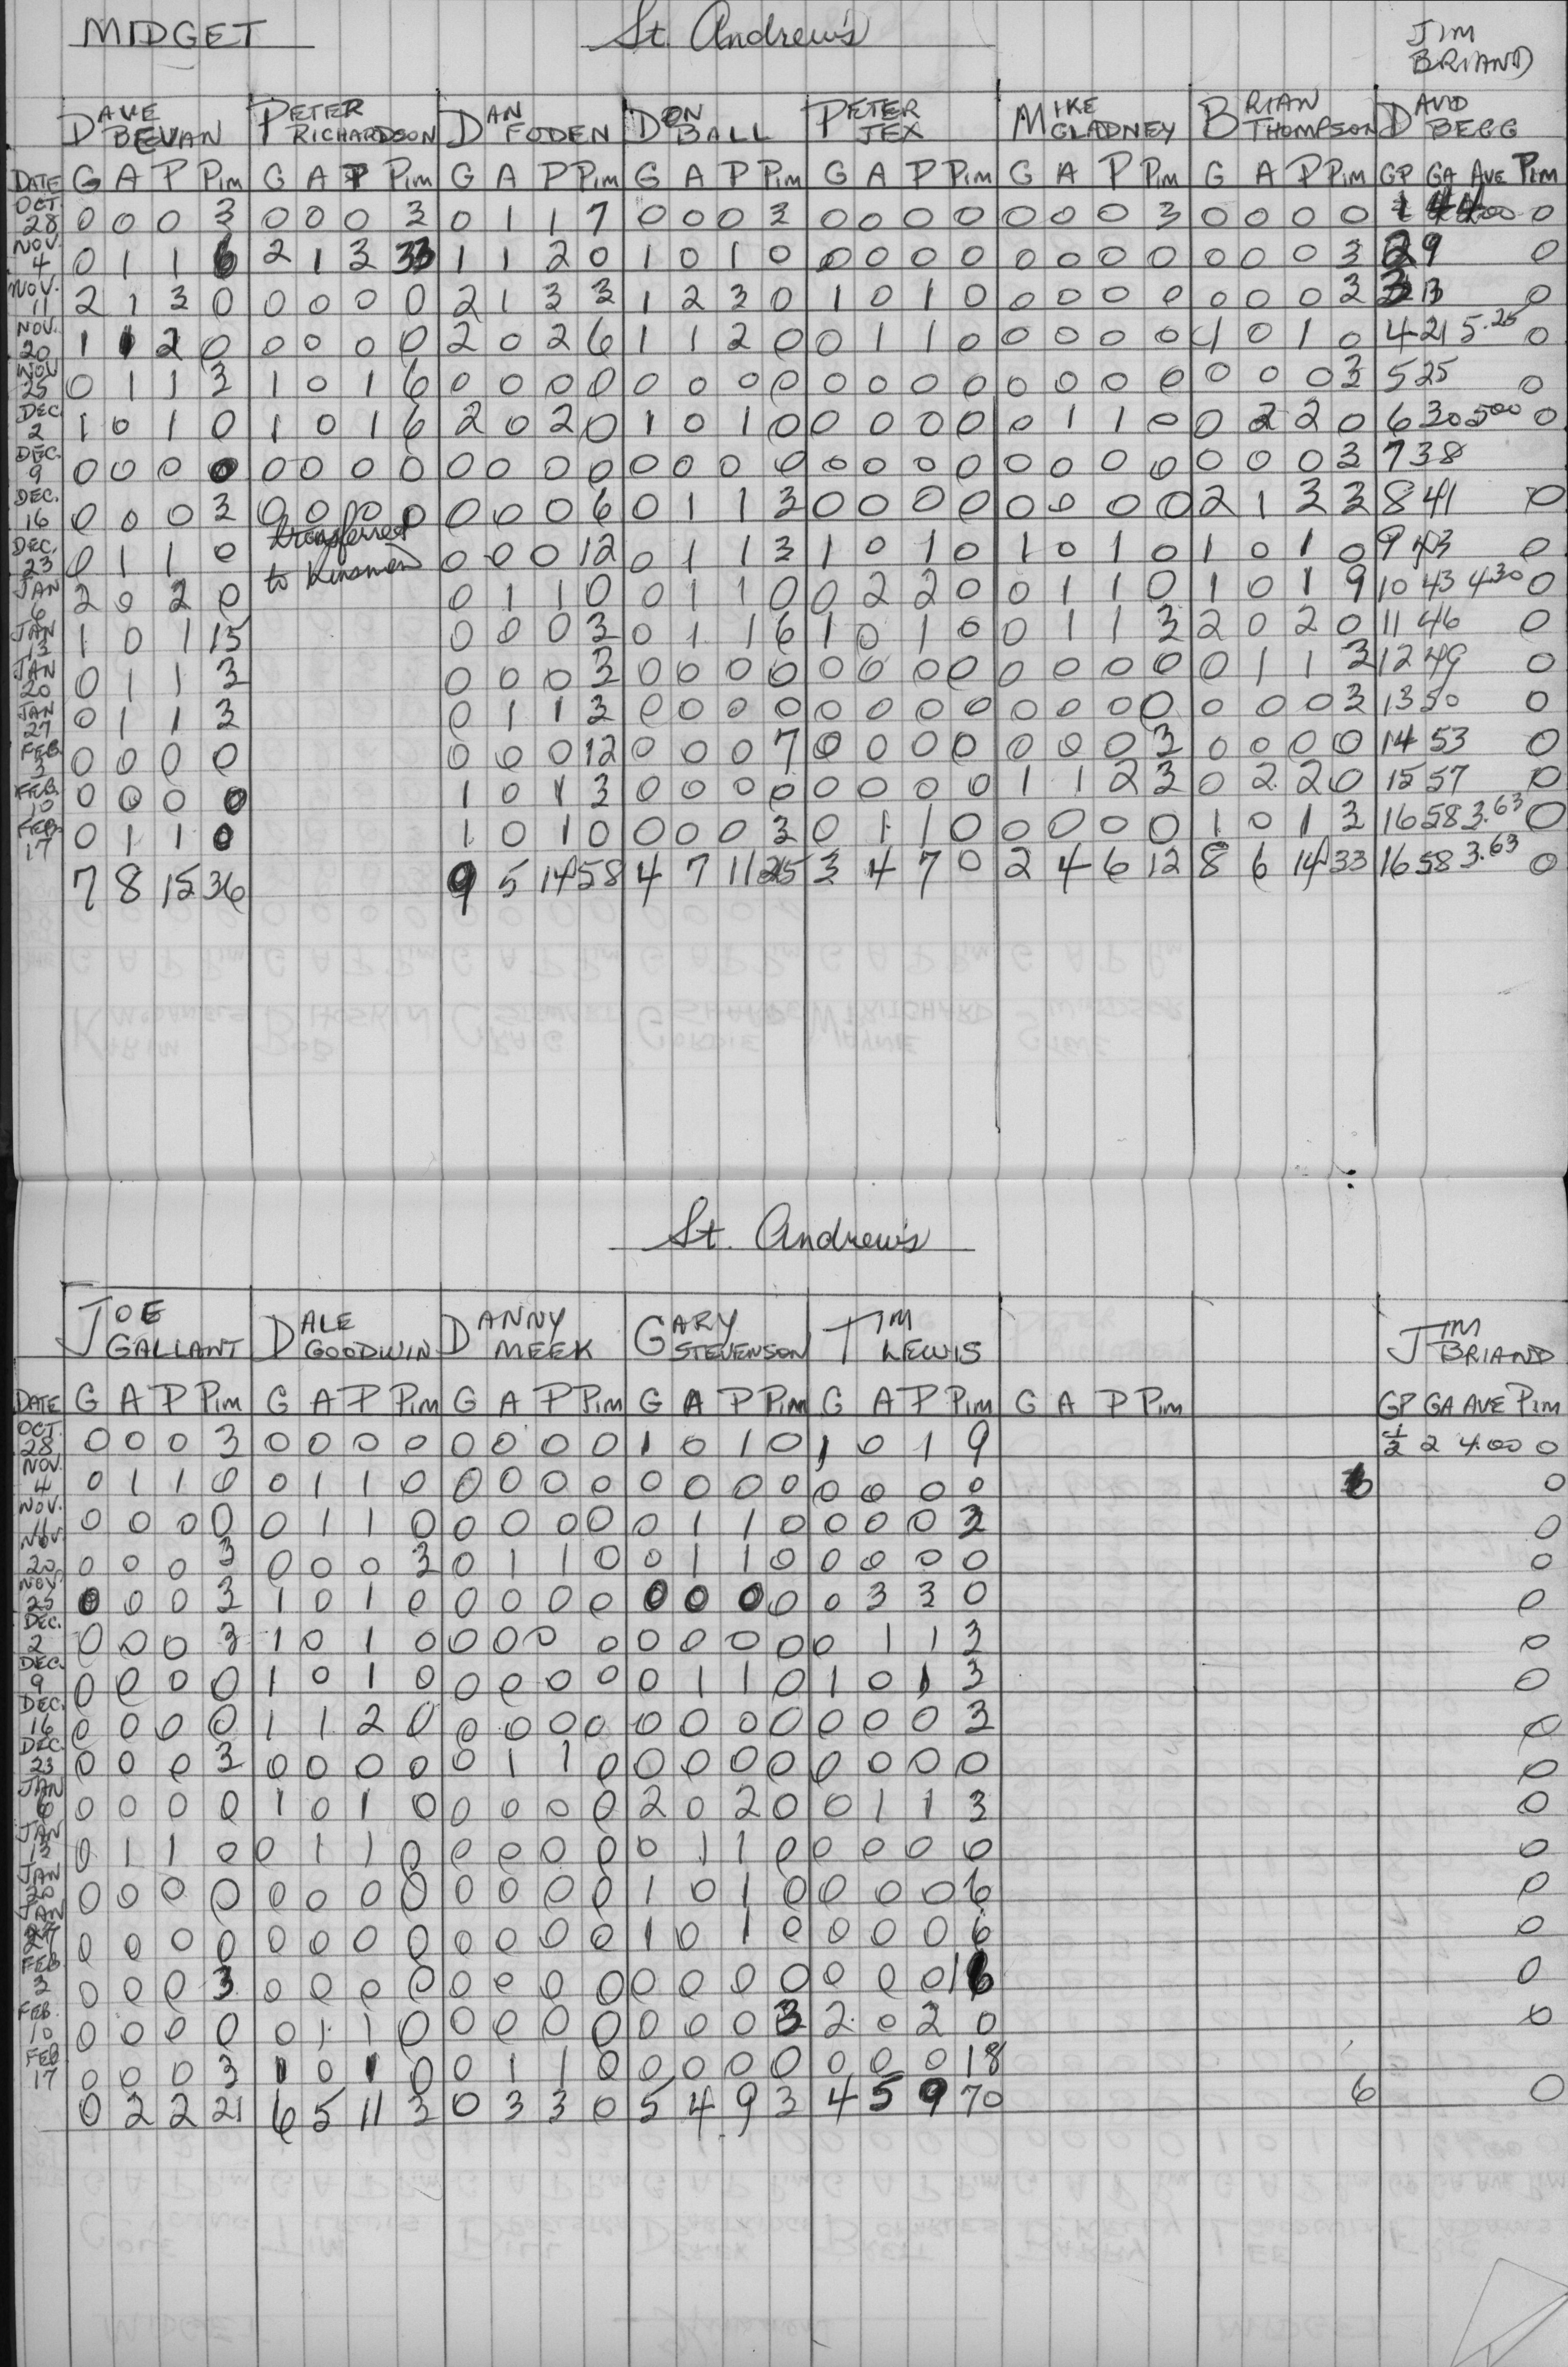 MIDGET St. Andrew's JIM BRIAND
DAVE BEVAN PETER RICHARDSON DAN FODEN DON BALL PETER JEX MIKE GLADNEY BRIAN THOMPSON DAVID BEGG
DATE G A P Pim G A P Pim G A P Pim G A P Pim G A P Pim G A P Pim G A P Pim GP GA AVE Pim
OCT. 28 0 0 0 3 0 0 0 3 0 1 1 7 0 0 0 3 0 0 0 0 0 0 0 3 0 0 0 0 0
NOV. 4 0 1 1 6 2 1 3 33 1 1 2 0 1 0 1 0 0 0 0 0 0 0 0 0 0 0 0 3 2 9 0
NOV. 11 2 1 3 0 0 0 0 0 2 1 3 3 1 2 3 0 1 0 1 0 0 0 0 0 0 0 0 3 3 13 0
NOV. 20 1 1 2 0 0 0 0 0 2 0 2 6 1 1 2 0 0 1 1 0 0 0 0 0 1 0 1 0 4 21 5.25 0
NOV 25 0 1 1 3 1 0 1 6 0 0 0 0 0 0 0 0 0 0 0 0 0 0 0 0 0 0 0 3 5 25 0
DEC 2 1 0 1 0 1 0 1 6 2 0 2 0 1 0 1 0 0 0 0 0 0 1 1 0 0 2 2 0 6 30 5.00 0
DEC. 9 0 0 0 0 0 0 0 0 0 0 0 0 0 0 0 0 0 0 0 0 0 0 0 0 0 0 0 3 7 38
DEC. 16 0 0 0 3 0 0 0 0 0 0 0 6 0 1 1 3 0 0 0 0 0 0 0 0 2 1 3 3 8 41 0
DEC. 23 0 1 1 0 transferred 0 0 0 12 0 1 1 3 1 0 1 0 1 0 1 0 1 0 1 0 9 43 0
JAN 6 2 0 2 0 to Kinsmen 0 1 1 0 0 1 1 0 0 2 2 0 0 1 1 0 1 0 1 9 10 43 4.30 0
JAN 13 1 0 1 15 0 0 0 3 0 1 1 6 1 0 1 0 0 1 1 3 2 0 2 0 11 46 0
JAN 20 0 1 1 3 0 0 0 3 0 0 0 0 0 0 0 0 0 0 0 0 0 1 1 3 12 49 0
JAN 27 0 1 1 3 0 1 1 3 0 0 0 0 0 0 0 0 0 0 0 0 0 0 0 3 13 50 0
FEB 3 0 0 0 0 0 0 0 12 0 0 0 7 0 0 0 0 0 0 0 3 0 0 0 0 14 53 0
FEB. 10 0 0 0 0 1 0 1 3 0 0 0 0 0 0 0 0 1 1 2 3 0 2 2 0 15 57 0
FEB. 17 0 1 1 0 1 0 1 0 0 0 0 3 0 1 1 0 0 0 0 0 1 0 1 3 16 58 3.63 0
7 8 15 36 9 5 14 58 4 7 11 25 3 4 7 0 2 4 6 12 8 6 14 33 16 58 3.63 0
St. Andrew's
JOE GALLANT DALE GOODWIN DANNY MEEK GARY STEVENSON TIM LEWIS JIM BRIAND
DATE G A P Pim G A P Pim G A P Pim G A P Pim G A P Pim G A P Pim GP GA AVE Pim
OCT. 28 0 0 0 3 0 0 0 0 0 0 0 0 1 0 1 0 1 0 1 9 1/2 2 4.00 0
NOV. 4 0 1 1 0 0 1 1 0 0 0 0 0 0 0 0 0 0 0 0 0 0
NOV. 11 0 0 0 0 0 1 1 0 0 0 0 0 0 1 1 0 0 0 0 3 0
NOV. 20 0 0 0 3 0 0 0 3 0 1 1 0 0 1 1 0 0 0 0 0 0
NOV. 25 0 0 0 3 1 0 1 0 0 0 0 0 0 0 0 0 0 3 3 0 0
DEC. 2 0 0 0 3 1 0 1 0 0 0 0 0 0 0 0 0 0 1 1 3 0
DEC. 9 0 0 0 0 1 0 1 0 0 0 0 0 0 1 1 0 1 0 1 3 0
DEC. 16 0 0 0 0 1 1 2 0 0 0 0 0 0 0 0 0 0 0 0 3 0
DEC. 23 0 0 0 3 0 0 0 0 0 1 1 0 0 0 0 0 0 0 0 0 0
JAN 6 0 0 0 0 1 0 1 0 0 0 0 0 2 0 2 0 0 1 1 3 0
JAN 13 0 1 1 0 0 1 1 0 0 0 0 0 0 1 1 0 0 0 0 0 0
JAN 20 0 0 0 0 0 0 0 0 0 0 0 0 1 0 1 0 0 0 0 6 0
JAN 27 0 0 0 0 0 0 0 0 0 0 0 0 1 0 1 0 0 0 0 6 0
FEB 3 0 0 0 3 0 0 0 0 0 0 0 0 0 0 0 0 0 0 0 16 0
FEB. 10 0 0 0 0 0 1 1 0 0 0 0 0 0 0 0 3 2 0 2 0 0
FEB 17 0 0 0 3 1 0 1 0 0 1 1 0 0 0 0 0 0 0 0 18
0 2 2 21 6 5 11 3 0 3 3 0 5 4 9 3 4 5 9 70 6 0